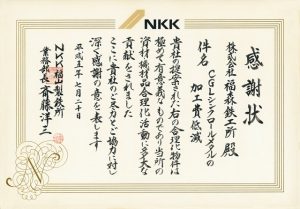 NKK
感謝状
株式会社 福森鉄工所 殿
件名 CGLシンクロールメタルの
加工費低減
貴社の提案された右の合理化物件は
極めて有意義なものであり当所の
資材機材品合理化活動に多大な
貢献をされました
ここに貴社のご尽力とご協力に対し
深く感謝の意を表します
平成五年七月二十日
NKK福山製鉄所
業務部長 斉藤洋三
N